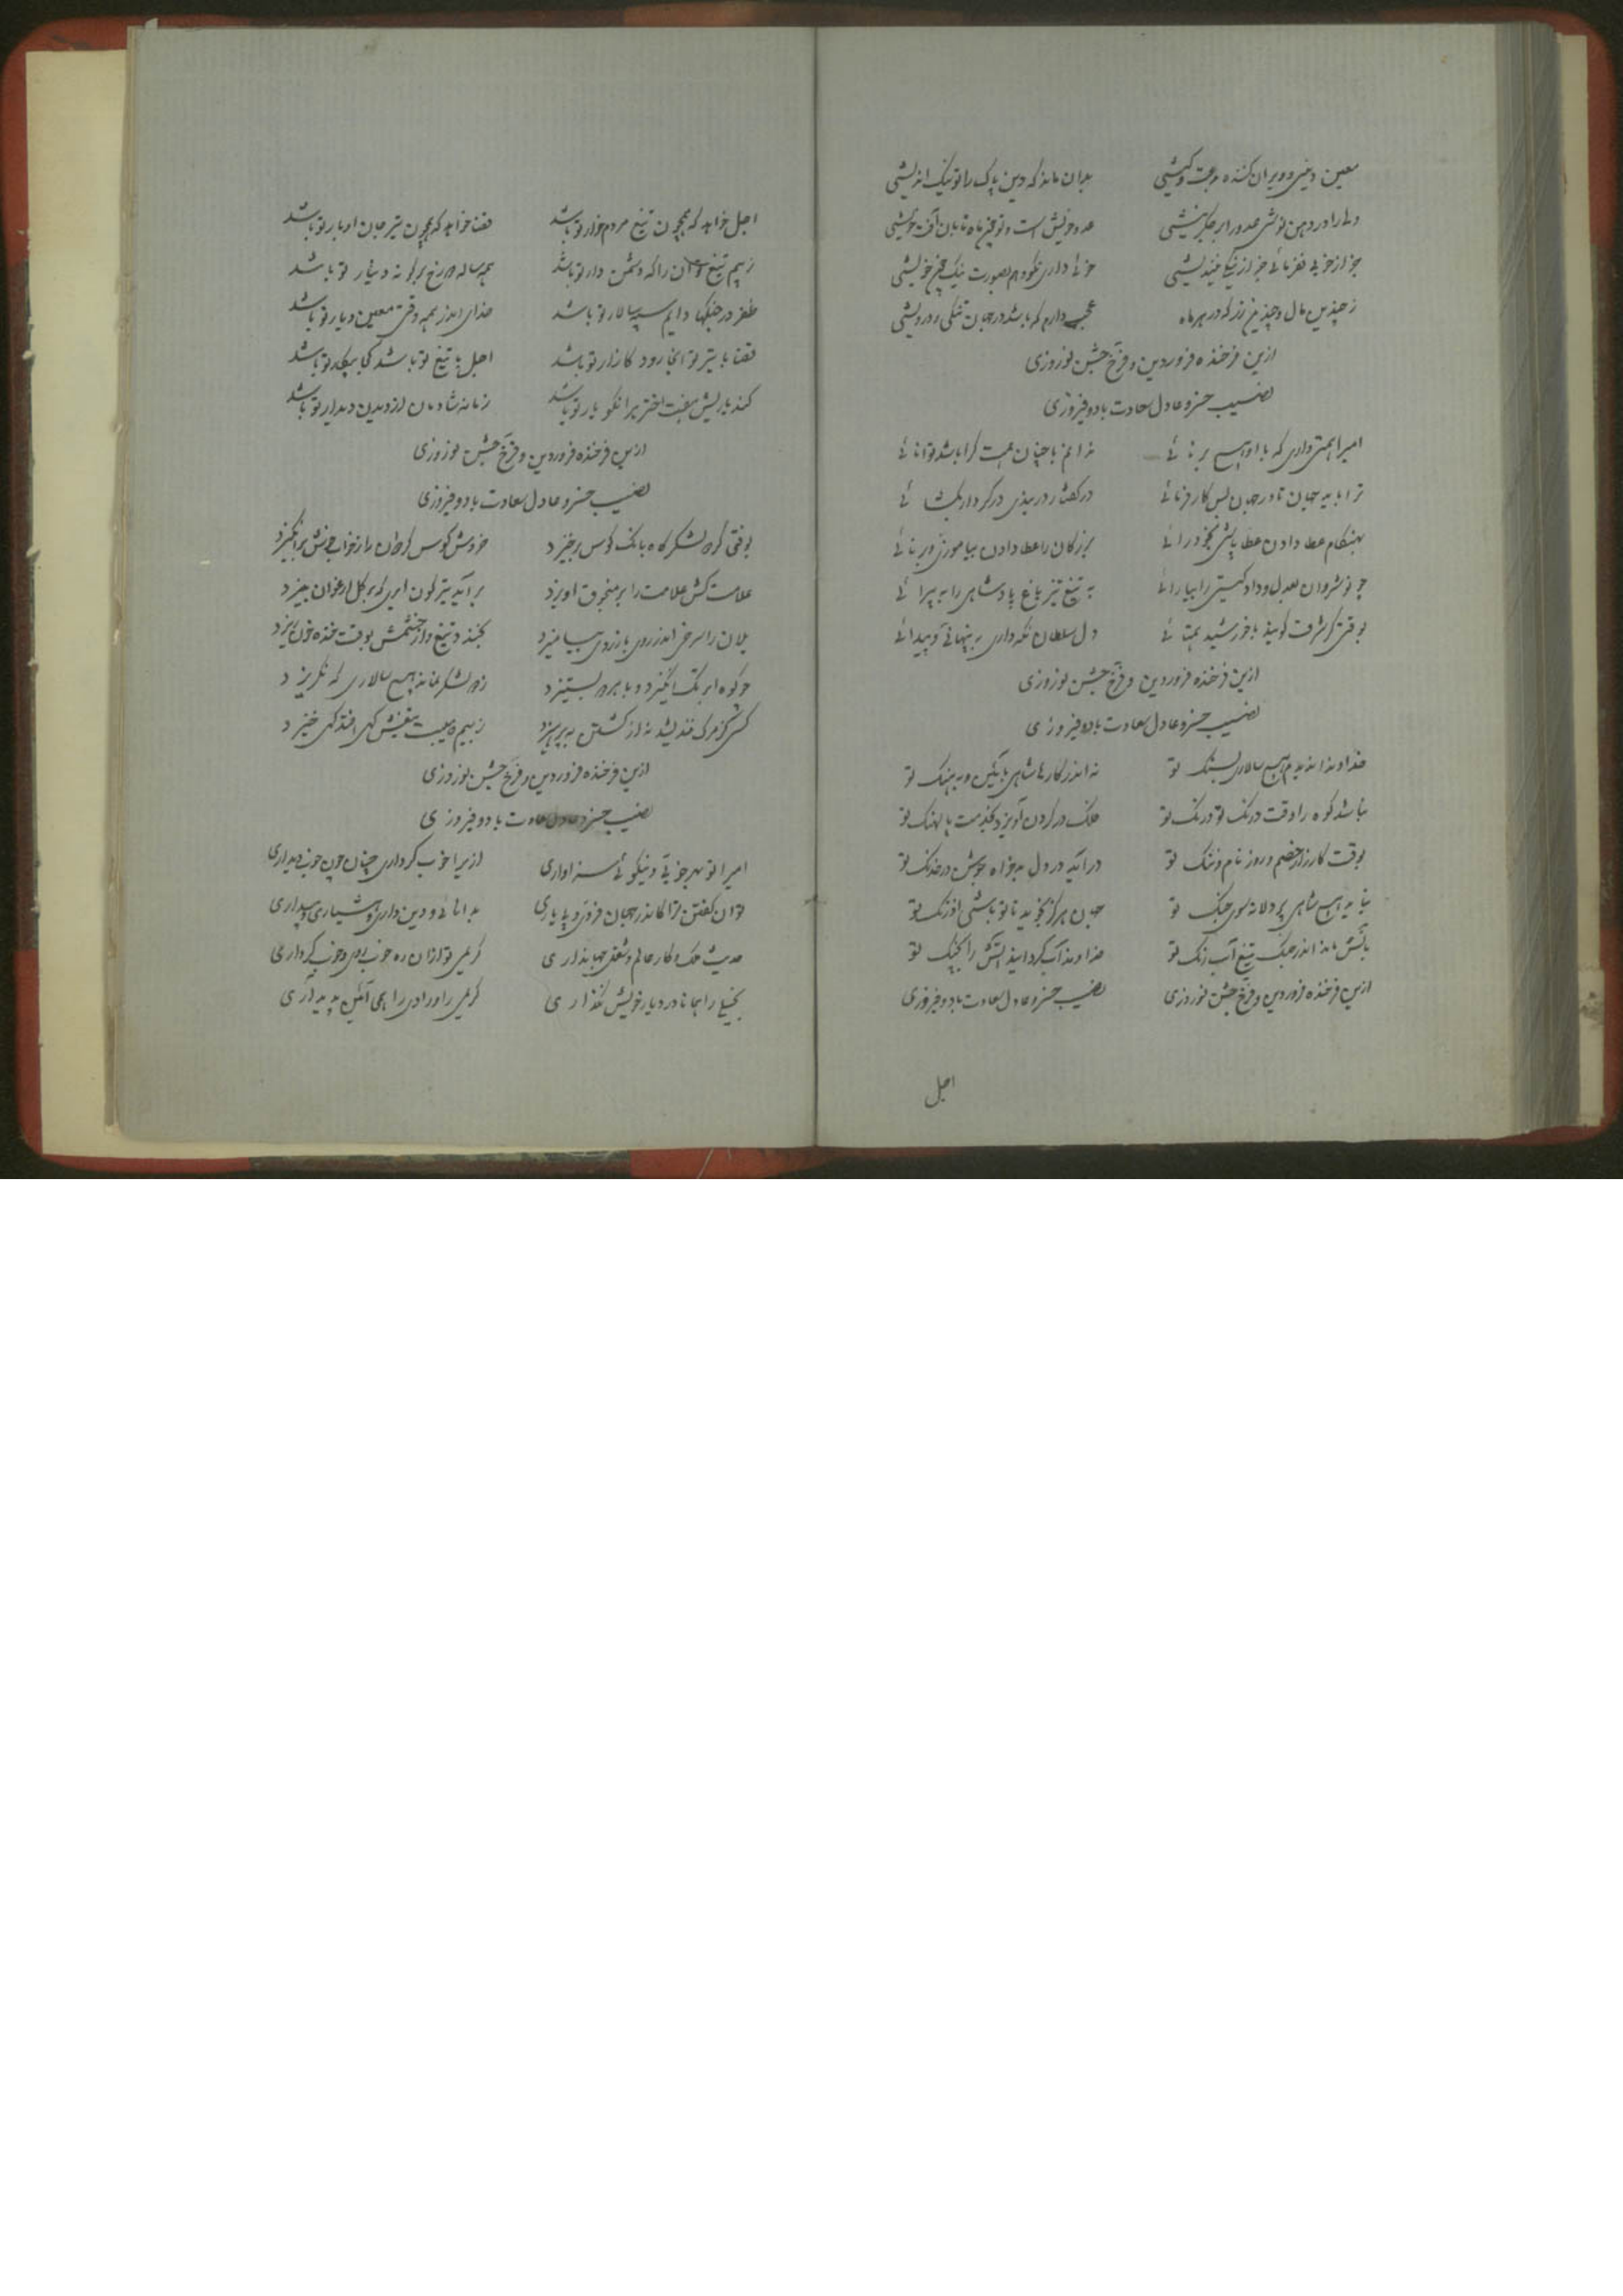 معین دینی و ویران کننده بدعت و کیشی بدان ماند که دین پاک را تو نیک اندیشی
ولی را در دهن نوشی عدو را بر جگر نیشی عدو خویش است و تو چون ماه تابان آفت خویشی
جز از خوبی نفرمائی جز از نیکی نیندیشی خوئی داری نکو و هم بصورت نیک چون خویشی
ز چندین مال و چندین زر که در هر ماه عجب دارم که باشد در جهان تنگی و درویشی
ازین فرخنده فروردین و فرخ جشن نوروزی
نصیب خسرو عادل سعادت باد و فیروزی
امیرا همتی داری که با او بس بر نائی ندانم با چنان همت کرا باشد توانائی
ترا باید جهان تا در جهان بس کار فرمائی در گفتار در بندی در کردار بگشائی
بهنگام عطا دادن عطا پاشی بخود رائی بزرگان را عطا دادن بیاموزی و برنائی
چو نوشروان بعدل و داد گیتی را بیارائی به تیغ تیز باغ پادشاهی را به پیرائی
بوقتی کز شرف گویند با خورشید همتائی دل سلطان نگه داری به پنهانی و پیدائی
ازین فرخنده فروردین و فرخ جشن نوروزی
نصیب خسرو عادل سعادت باد و فیروزی
خداوندا ندیدم هیچ سالاری بسنگ تو نه اندر کارهای شاهی بآئین و به هنگ تو
نباشد کوه را وقت درنگ تو درنگ تو فلک در گردن آویزد بخدمت پالهنگ تو
بوقت کارزار خصم و روز نام و ننگ تو درآید در دل بدخواه جوشن در خدنگ تو
نیاید هیچ شاهی پر دلانه سوی جنگ تو جهان هرگز نجوید تا تو باشی اورنگ تو
بآتش ماند اندر جنگ تیغ آب رنگ تو خداوند آب گرداند آتش را بجنگ تو
ازین فرخنده فروردین و فرخ جشن نوروزی نصیب خسرو عادل سعادت باد و فیروزی
اجل
اجل خواهد که همچون تیغ مردم خوار تو باشد قضا خواهد که همچون تیر جان اوبار تو باشد
ز بیم تیغ آن را که دشمن دار تو باشد همه ساله دو رخ بر گونه دینار تو باشد
ظفر در جنگها دایم سپهسالار تو باشد خدای اندر همه وقتی معین و یار تو باشد
قضا با تیر تو آنجا رود کازار تو باشد اجل با تیغ تو باشد کجا پیکار تو باشد
کند یاریش هفت اختر هر آنکو یار تو باشد زمانه شادمان از دیدن دیدار تو باشد
ازین فرخنده فروردین و فرخ جشن نوروزی
نصیب خسرو عادل سعادت باد و فیروزی
بوقتی کز دو لشکرگاه بانگ کوس برخیزد خروش کوس گردان را ز خواب خوش برانگیزد
علامت کش علامت را بر منجوق آویزد برآید تیرگون ابری که بر گل ارغوان بیزد
یلان را سرخی اندر روی با زردی بیامیزد بخندد تیغ و از چشمش بوقت خنده خون ریزد
چو کوه ابرگ انگیزد و با هر دو بستیزد ز دو لشکر نماند هیچ سالاری که نگریزد
کسی کز مرگ نندیشد نه از کشتن بپرهیزد ز بیم و هیبت تیغش گهی افتد گهی خیزد
ازین فرخنده فروردین و فرخ جشن نوروزی
نصیب خسرو عادل سعادت باد و فیروزی
امیرا تو بهر خوبی و نیکوئی سزاواری ازیرا خوب کرداری چنان چون خوب دیداری
توان گفتن ترا کاندر جهان فردی و بی یاری بدانائی و دین داری و هشیاری و بیداری
حدیث ملک و کار عالم و شغل جهانداری کریمی تو ازان ده خوب روی و خوب کرداری
بخیلی را همانا در دیار خویش نگذاری کریمی را و رادی را همی آئین پدید آری